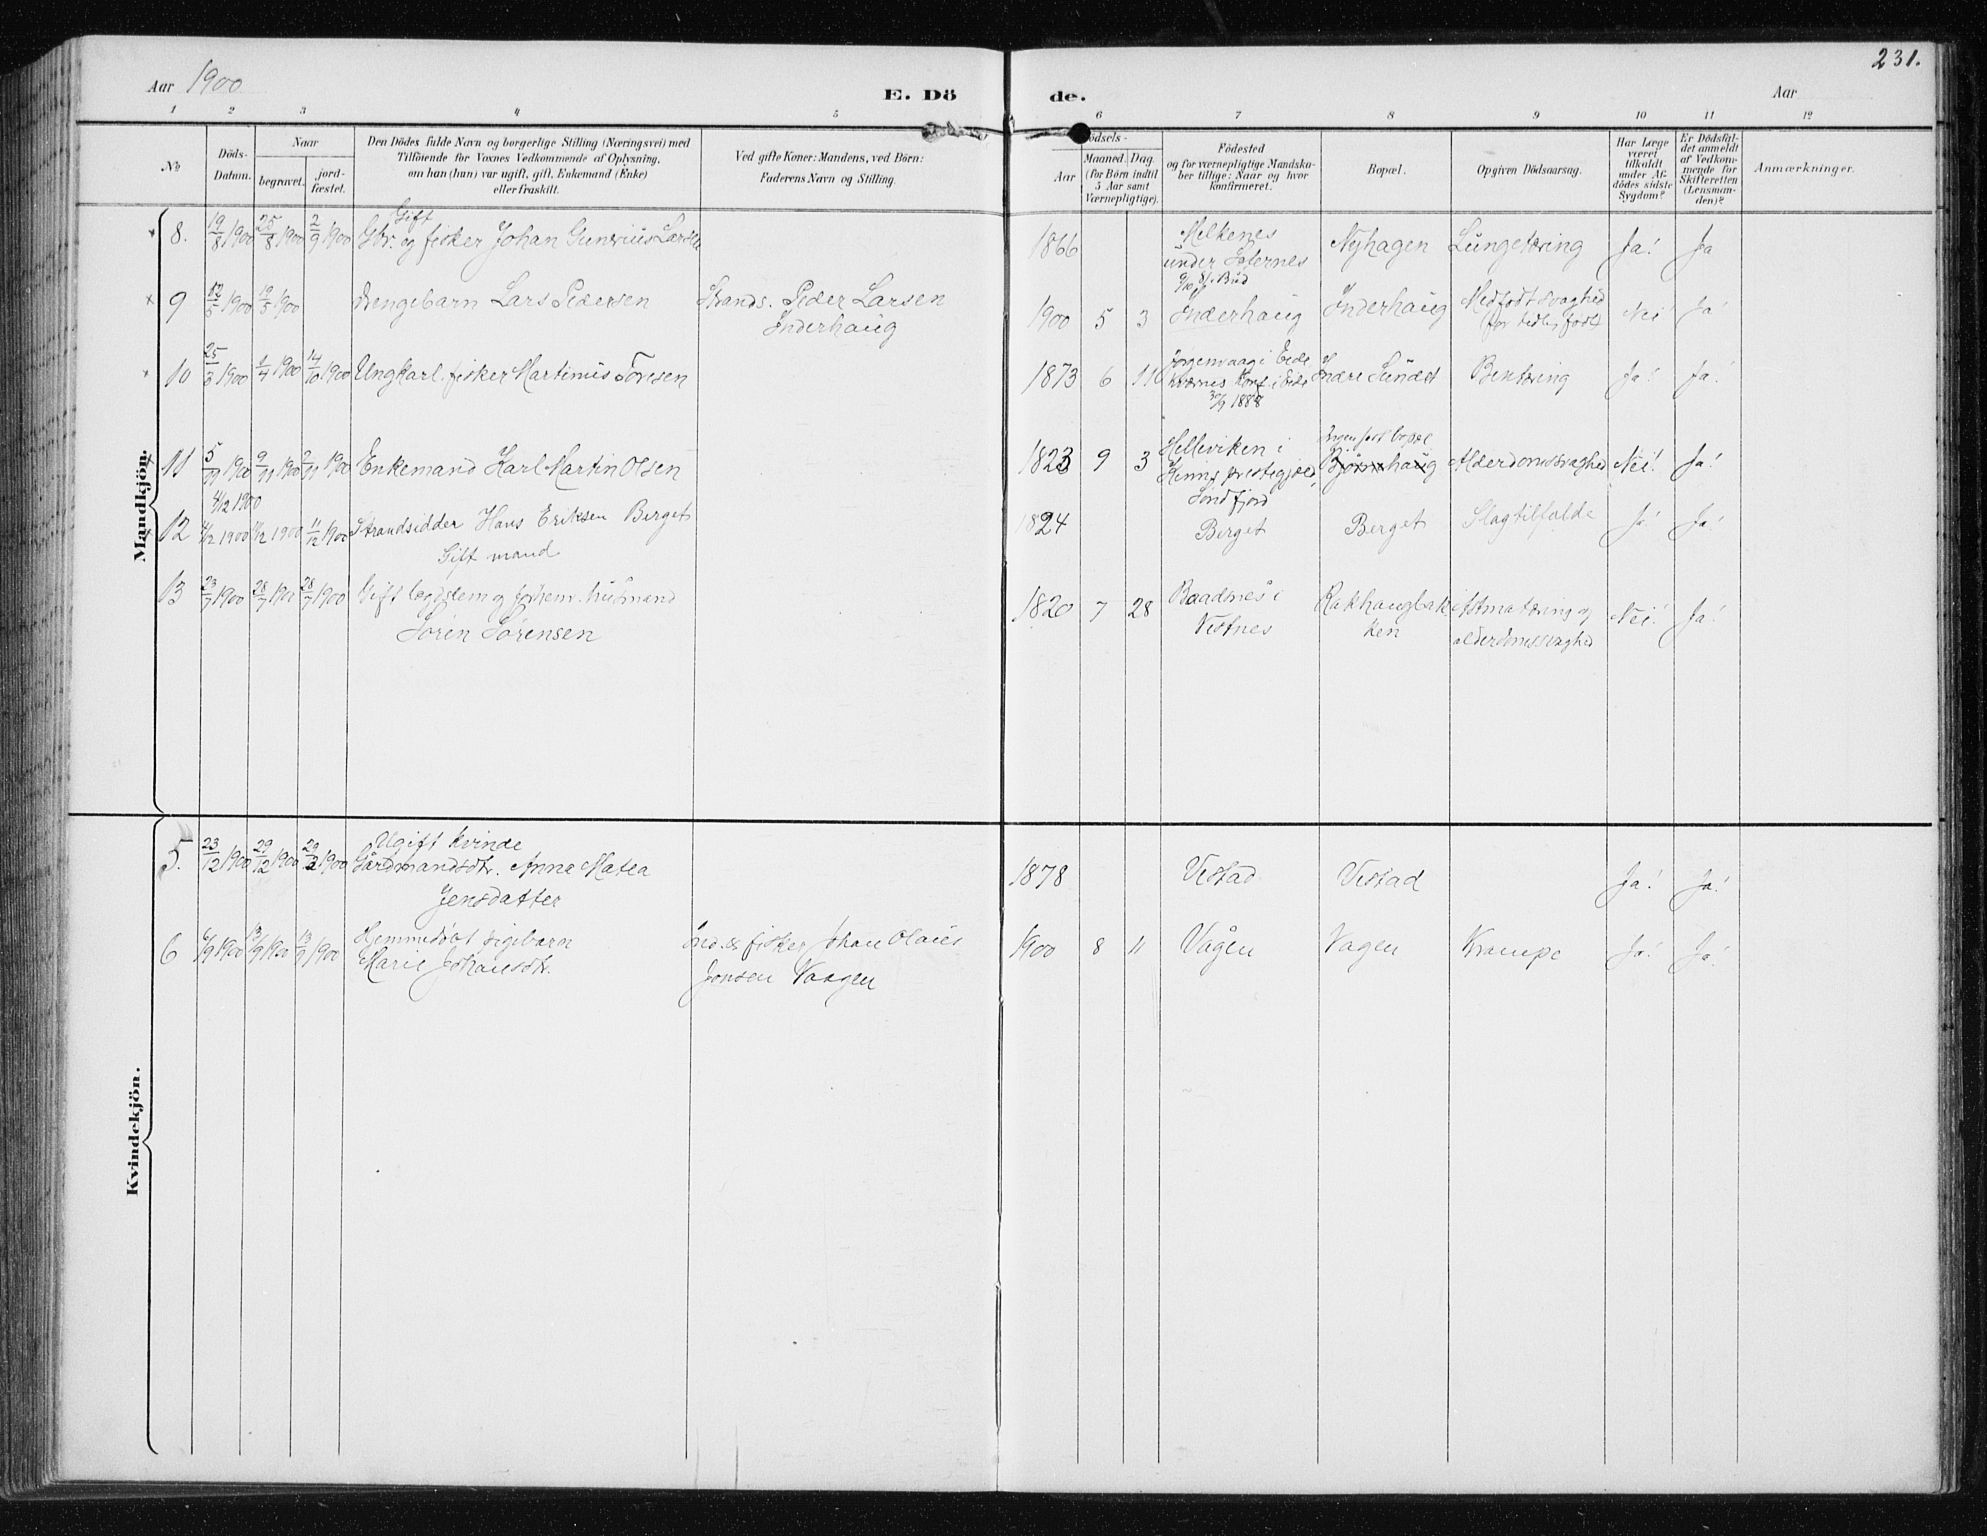 231.
Aar 1900
E. Dö de.
Aar
1 2 3 4 5 6 7 8 9 10 11 12
No
Döds-
Datum.
Naar
begravet.
jord-
fæstet.
Den Dödes fulde Navn og borgerlige Stilling (Næringsvei) med
Tilföiende for Voxnes Vedkommende af Oplysning,
om han (hun) var ugift, gift, Enkemand (Enke)
eller fraskilt.
Ved gifte Koner: Mandens, ved Börn:
Faderens Navn og Stilling.
ödsels-
Aar
Maaned. Dag.
(for Börn indtil
5 Aar samt
Værnepligtige).
Födested
og for værnepligtige Mandska-
ber tillige: Naar og hvor
konfirmeret.
Bopæl.
Opgiven Dödsaarsag.
Har Læge
været
tilkaldt
under Af-
dödes sidste
Sygdom?
Er Dödsfal-
det anmeldt
af Vedkom-
mende for
Skifteretten
(Lensman-
den)?
Anmærkninger.
Mandkjön.
8. 19/8 1900 25/8 1900 2/9 1900 Gift
Gbr. og fisker Johan Gunerius Larsen 1866 Melkenes
under
Nyhagen Lungetæring Ja! Ja
9 12/5 1900 19/5 1900 Drengebarn Lars Pedersen Strands. Peder Larsen
Inderhaug
1900 5 3 Inderhaug Inderhaug Medfødt svaghed
(for tidlig født) Nei Ja!
10 25/3 1900 1/4 1900 14/10 1900 Ungkarl, fisker Martinus Toresen 1873 6 11 Jørgenvaag i Eide
Kværnes Konf. i Eide
30/9 1888
Indre Sundet Bentæring Ja! Ja!
11 5/11 1900 9/11 1900 9/11 1900 Enkemand Karl Martin Olsen 1823 9 3 Helleviken i
Kinns prestegjeld,
Søndfjord
Ingen fast bopæl
Bjørnahaug Alderdomssvaghed Nei! Ja!
4/12 1900
12 4/12 1900 11/12 1900 11/12 1900 Strandsidder Hans Eriksen Berget
Gift mand
1824 Berget Berget Slagtilfælde Ja! Ja!
13 23/7 1900 28/7 1900 28/7 1900 Gift lægdslem og forhenv. husmand
Søren Sørensen
1820 7 28 Baadnes i
Vestnes
Rakhaugbak
ken
Astma tæring og
alderdomssvaghed Nei! Ja!
Kvindekjön.
5. 23/12 1900 29/12 1900 29/12 1900 Ugift kvinde
Gårdmandsdtr. Anna Matea
Jensdatter
1878 Vestad Vestad Ja! Ja!
6 6/9 1900 13/9 1900 13/9 1900 Hjemmedøbt pigebarn
Marie Johansdtr.
Ind. & fisker Johan Olaus
Jonsen Vaagen
1900 8 11 Vågen Vagen Krampe Ja! Ja!